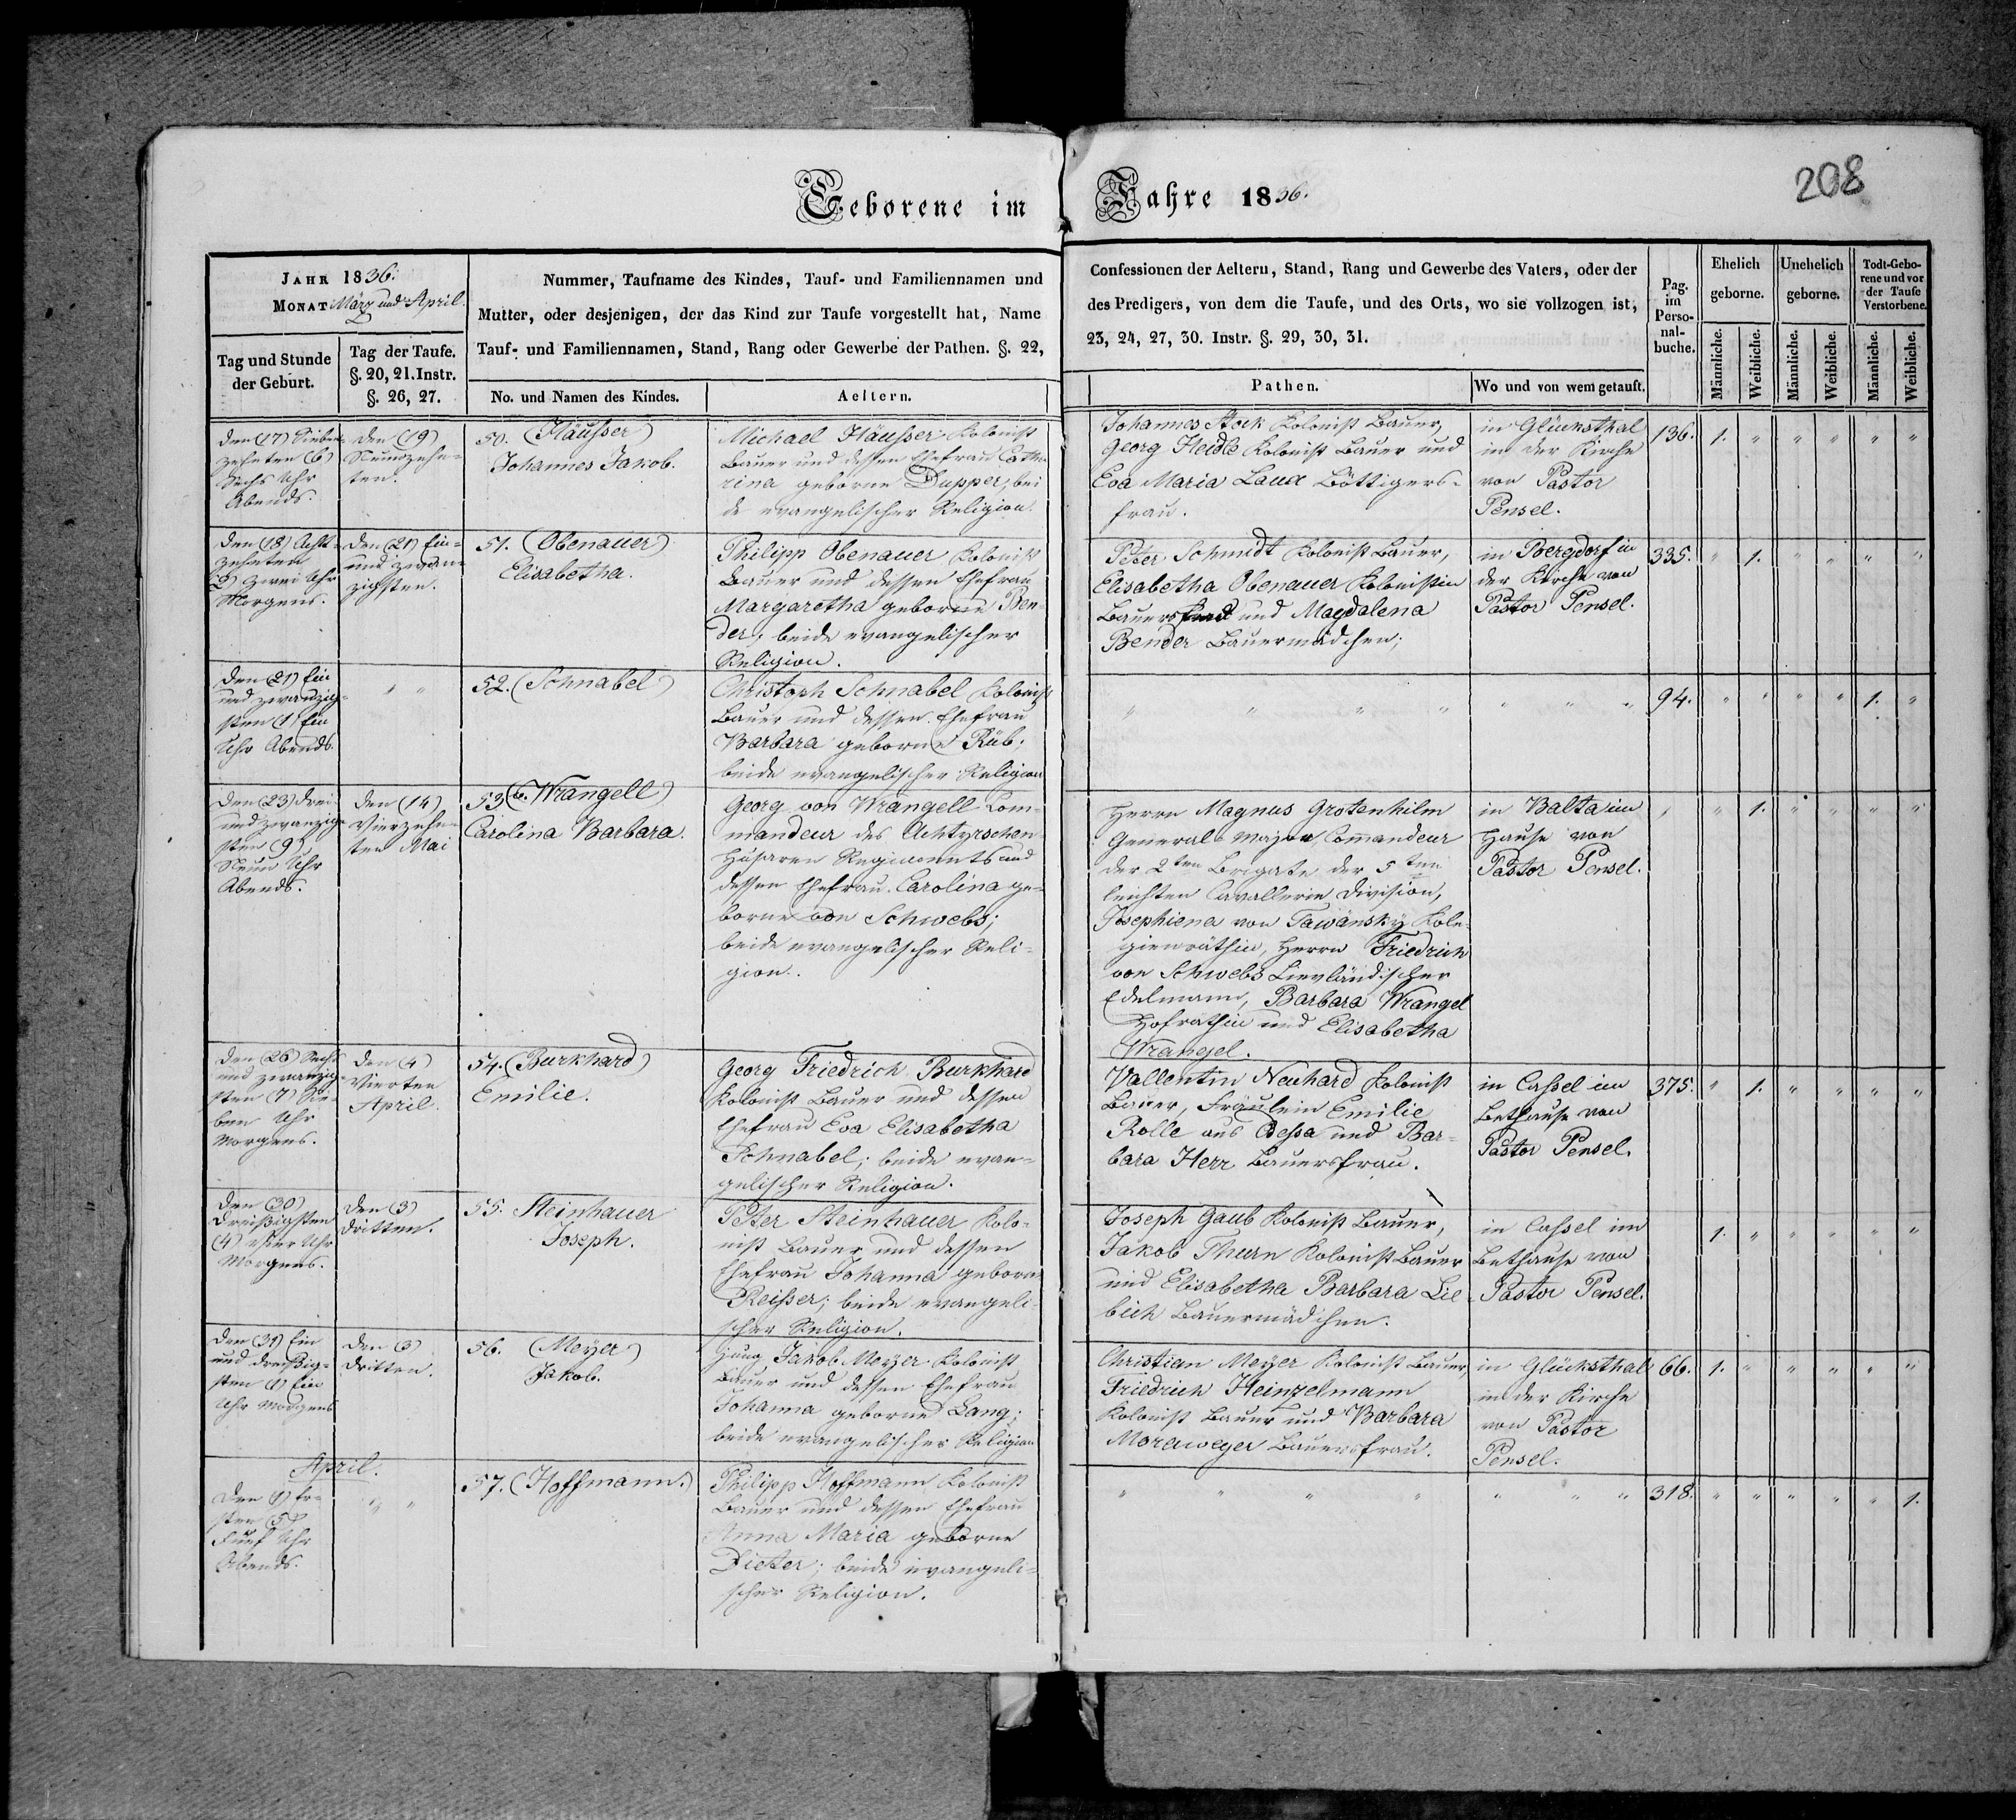 208
Geborene im Jahre 1836.
JAHR 1836.
MONAT März und April.
Tag und Stunde
der Geburt.
Tag der Taufe.
§. 20, 21. Instr.
§. 26, 27.
Nummer, Taufname des Kindes, Tauf- und Familiennamen und
Mutter, oder desjenigen, der das Kind zur Taufe vorgestellt hat, Name
Tauf- und Familiennamen, Stand, Rang oder Gewerbe der Pathen. §. 22,
No. und Namen des Kindes.
Aeltern.
Confessionen der Aeltern, Stand, Rang und Gewerbe des Vaters, oder der
des Predigers, von dem die Taufe, und des Orts, wo sie vollzogen ist,
23, 24, 27, 30. Instr. §. 29, 30, 31.
Pathen.
Wo und von wem getauft.
Pag.
im
Perso-
nal-
buche.
Ehelich
geborne.
Unehelich
geborne.
Todt-Gebo-
rene und vor
der Taufe
Verstorbene.
Männliche.
Weibliche.
Männliche.
Weibliche.
Männliche.
Weibliche.
Den (17) Sieben-
zehnten (6)
Sechs Uhr
Abends.
Den (19)
Neunzehn-
ten.
50. (Häußer)
Johannes Jakob.
Michael Häußer Kolonist
Bauer und dessen Ehefrau Catha-
rina geborne Dupper, bei
de evangelischer Religion.
Johannes Stock Kolonist Bauer,
Georg Heidle Kolonist Bauer und
Eva Maria Laux Böttigers-
frau.
in Glücksthal
in der Kirche
von Pastor
Pensel.
136. 1. " " " " "
Den (18) Acht-
zehnten
(2) Zwei Uhr
Morgens.
Den (21) Ein-
und zwan-
zigsten.
51. (Obenauer)
Elisabetha.
Philipp Obenauer Kolonist
Bauer und dessen Ehefrau
Margaretha geborne Ben-
der; beide evangelischer
Religion.
Peter Schmidt Kolonist Bauer,
Elisabetha Obenauer Kolonistin
Bauersfrau und Magdalena
Bender Bauermädchen;
in Bergdorf in
der Kirche von
Pastor Pensel.
335. " 1. " " " "
Den (21) Ein
und zwanzig-
sten (1) Ein
Uhr Abends.
" "
52. (Schnabel)
Christoph Schnabel Kolonist
Bauer und dessen Ehefrau
Barbara geborne Rüb;
beide evangelischer Religion
" " " " " " "
94. " " " " 1. "
Den (23) Drei
und zwanzig-
sten (9)
Neun Uhr
Abends.
Den (14)
Vierzehn-
ten Mai
53 (v. Wrangell)
Carolina Barbara.
Georg von Wrangell Com-
mandeur des Achtyrschen
Husaren Regiments und
dessen Ehefrau Carolina ge-
borne von Schwebs;
beide evangelischer Reli-
gion.
Herrn Magnus Grotenhilm
General Major, Commandeur
der 2ten Brigate der 5ten
leichten Cavallerie Division,
Josephiena von Tawänsky Kole-
gienräthin, Herrn Friedrich
von Schwebs Lievländischer
Edelmann, Barbara Wrangel
Hofrathin und Elisabetha
Wrangel.
in Balta im
Hause von
Pastor Pensel.
" " 1. " " " "
Den (26) Sechs
und zwanzig-
sten (7) Sie-
ben Uhr
Morgens.
Den (4)
Vierten
April.
54. (Burkhard)
Emilie.
Georg Friedrich Burkhard
Kolonist Bauer und dessen
Ehefrau Eva Elisabetha
Schnabel; beide evan-
gelischer Religion.
Vallentin Neuhard Kolonist
Bauer, Fräulein Emilie
Rolle aus Odessa und Bar-
bara Herr Bauersfrau.
in Cassel im
Bethause von
Pastor Pensel.
375. " 1. " " " "
Den (30)
Dreißigsten
(4) Vier Uhr
Morgens.
Den (3)
Dritten.
55. Steinhauer
Joseph.
Peter Steinhauer Kolo-
nist Bauer und dessen
Ehefrau Johanna geborne
Reißer; beide evangeli-
scher Religion.
Joseph Gaub Kolonist Bauer,
Jakob Thurn Kolonist Bauer
und Elisabetha Barbara Lie-
bich Bauermädchen.
in Cassel im
Bethause von
Pastor Pensel.
1. " " " " "
Den (31) Ein
und dreißig-
sten (1) Ein
Uhr Morgens
Den (3)
Dritten.
56. (Meyer)
Jakob.
Jung Jakob Meyer Kolonist
Bauer und dessen Ehefrau
Johanna geborne Lang;
beide evangelischer Religion
Christian Meyer Kolonist Bauer,
Friedrich Heinzelmann
Kolonist Bauer und Barbara
Moraweger Bauersfrau.
in Glücksthal
in der Kirche
von Pastor
Pensel.
66. 1. " " " " "
April.
Den (1) Er-
sten (5)
Fünf Uhr
Abends.
" "
57. (Hoffmann.)
Philipp Hoffmann Kolonist
Bauer und dessen Ehefrau
Anna Maria geborne
Dieter; beide evangeli-
scher Religion.
" " " " " " "
318. " " " " " 1.